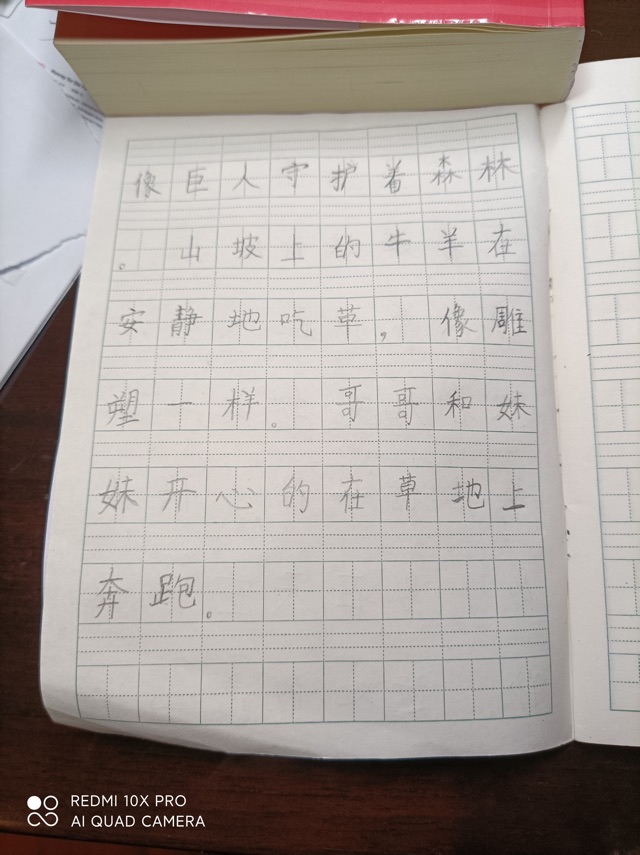 像巨人守护着森林
。山坡上的牛羊在
安静地吃草，像雕
塑一样。哥哥和妹
妹开心的在草地上
奔跑。
REDMI 10X PRO
AI QUAD CAMERA